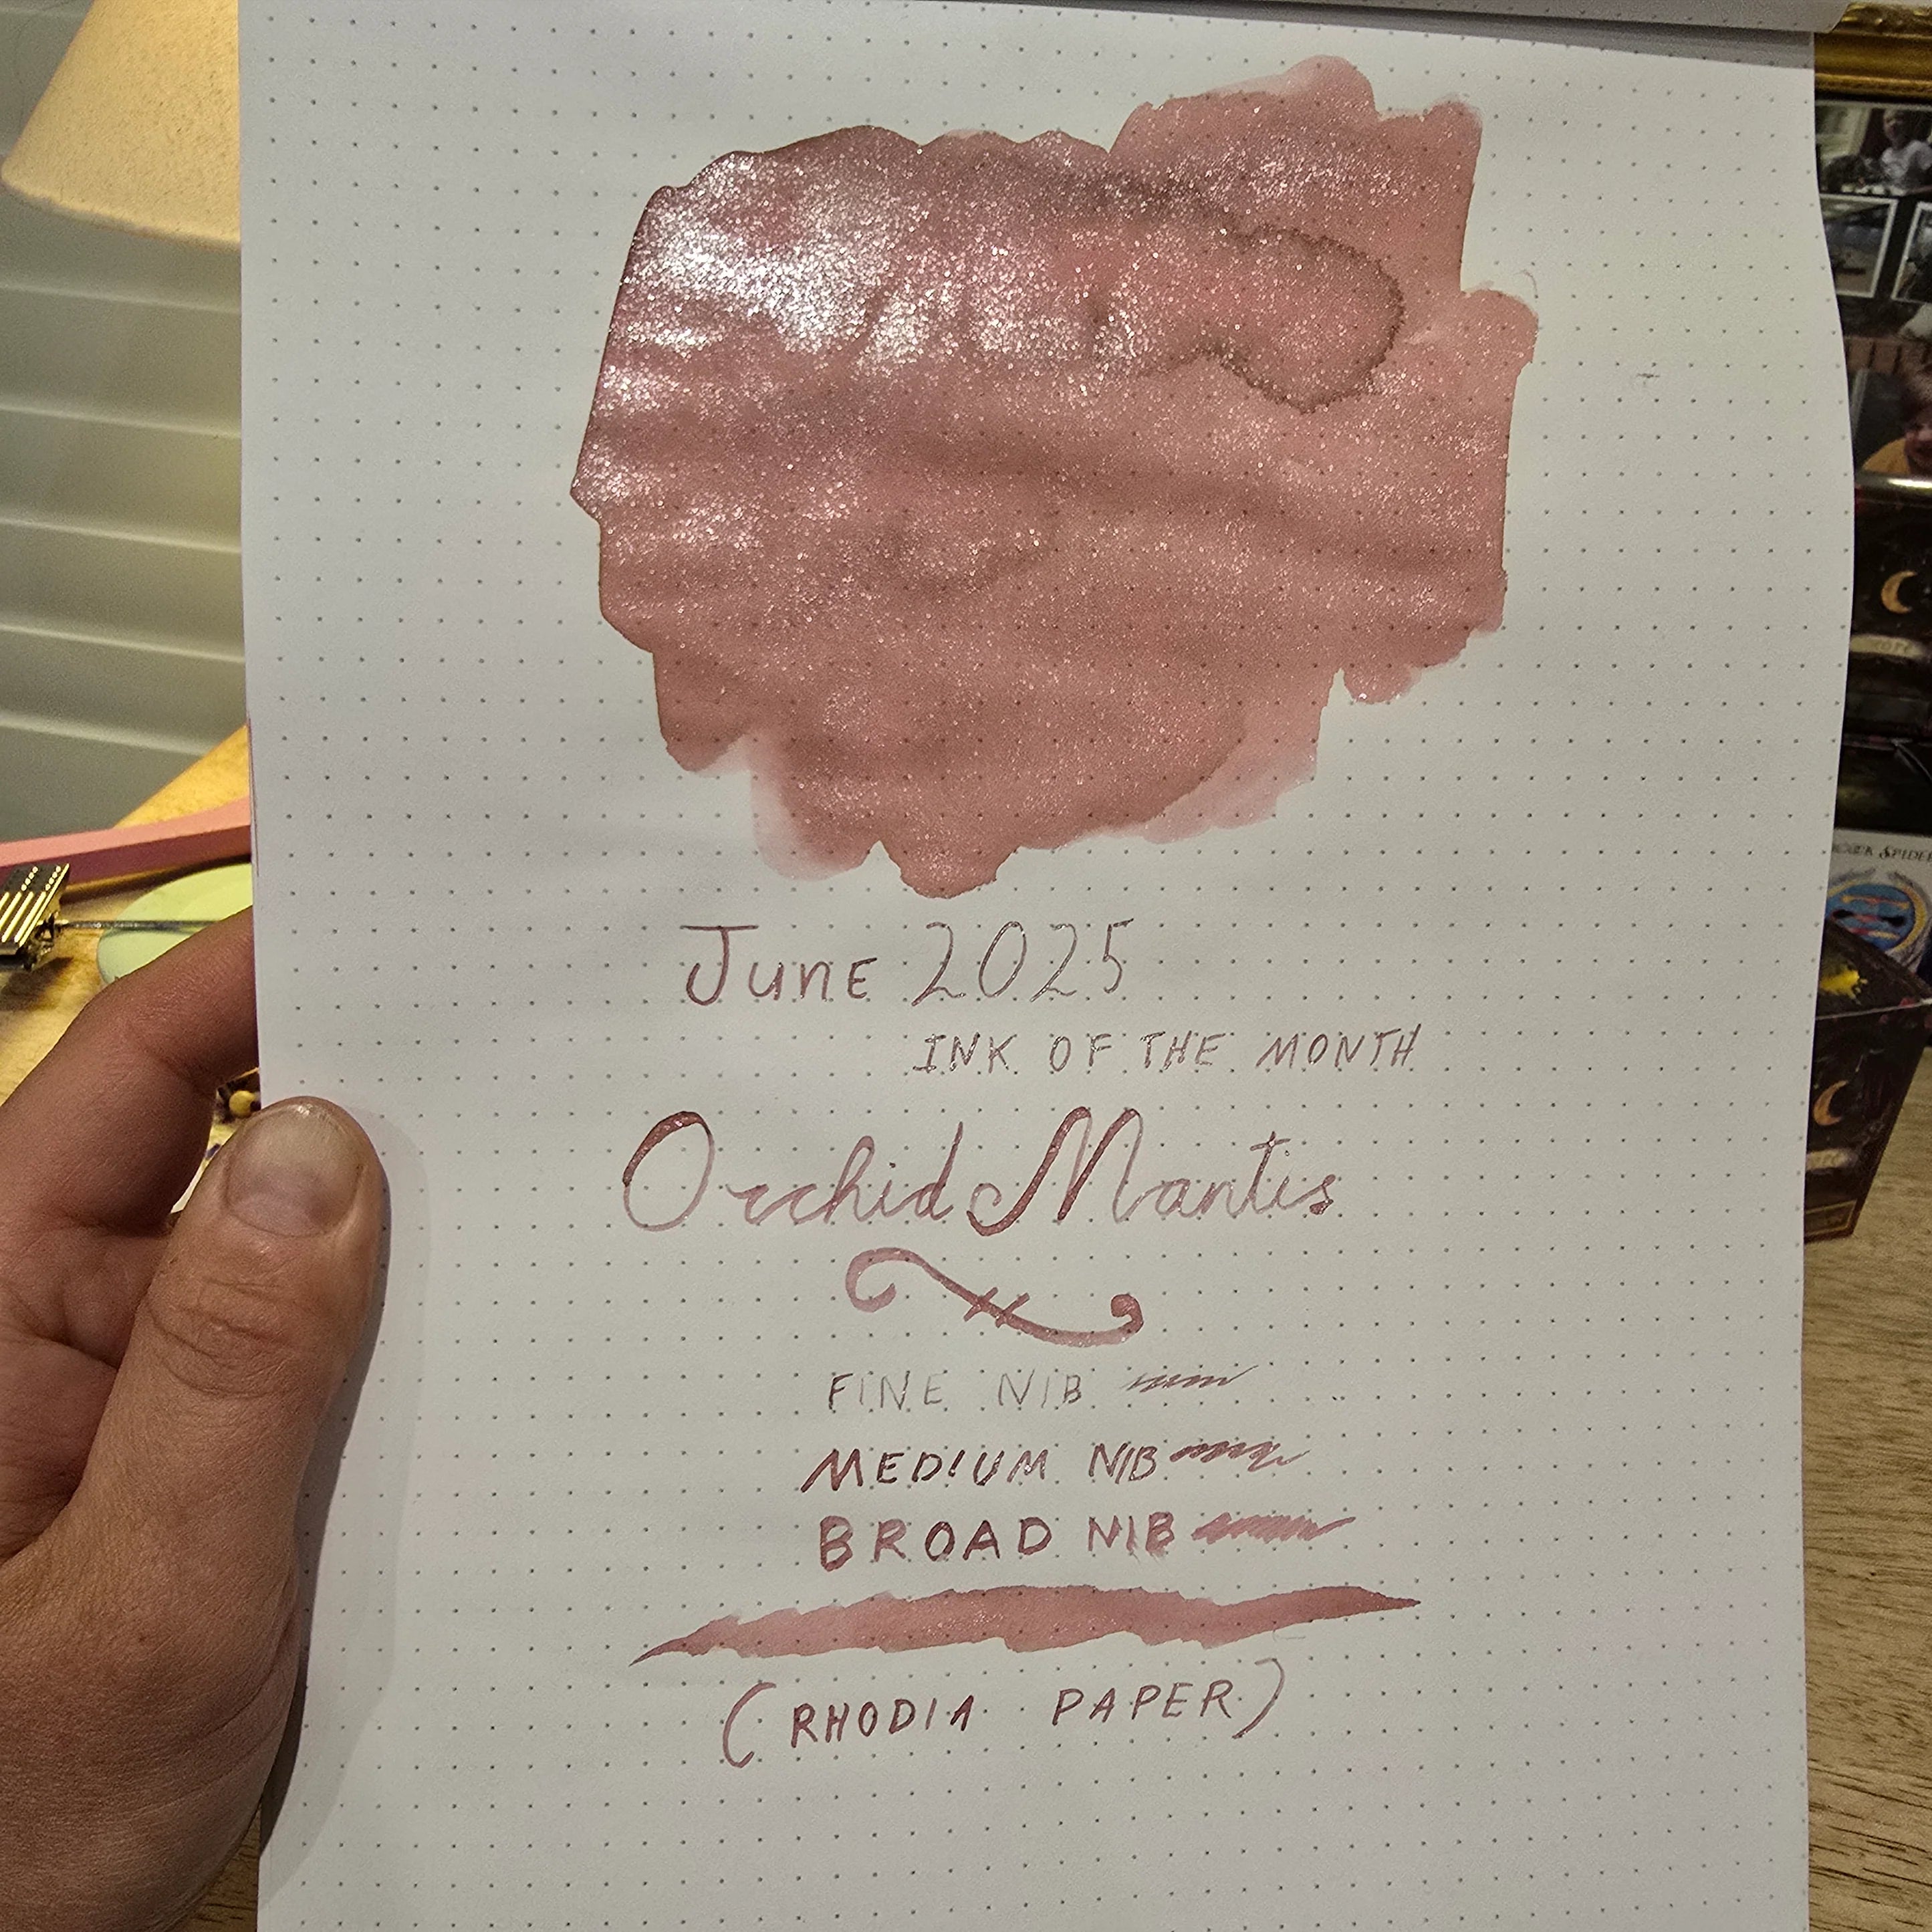 June 2025
INK OF THE MONTH
Orchid Mantis
FINE NIB
MEDIUM NIB
BROAD NIB
(RHODIA PAPER)